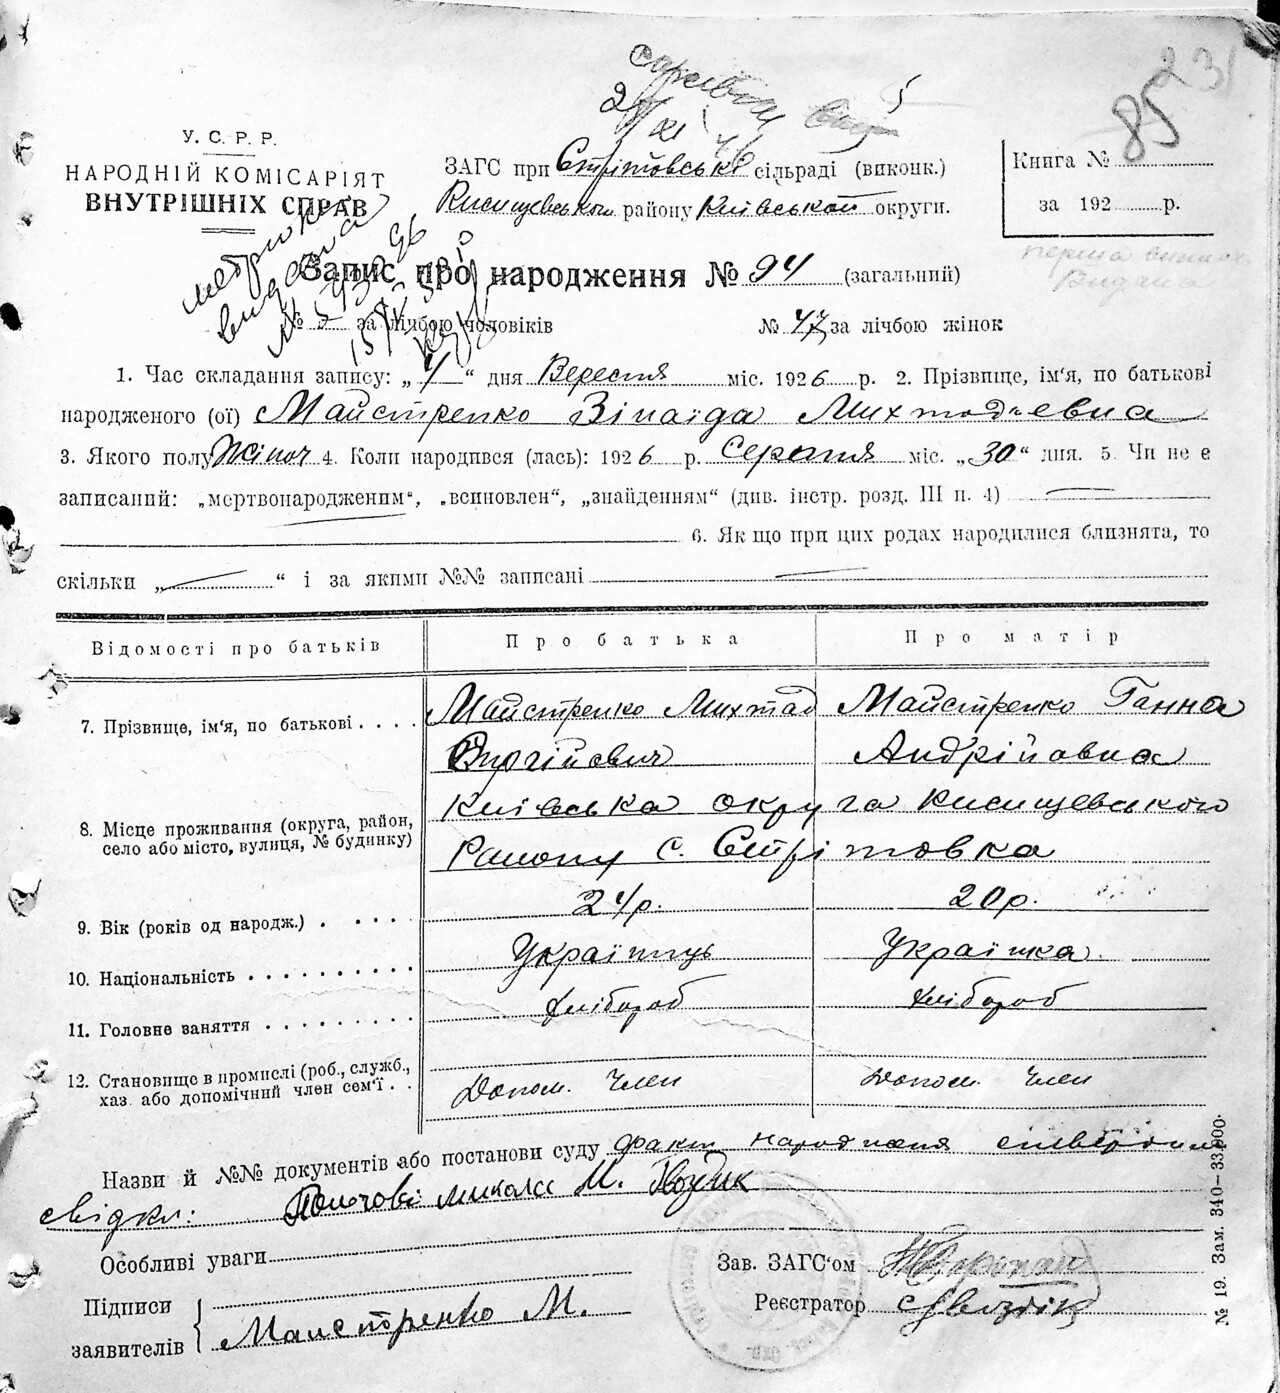 231
85
У. С. Р. Р.
НАРОДНІЙ КОМІСАРІЯТ
ВНУТРІШНІХ СПРАВ
ЗАГС при Стрітовські сільраді (виконк.)
Кисищевського району Київської округи.
Книга №
за 192 р.
метрика
видана
перша випись
Видана
Запис про народження № 94 (загальний)
№ за лічбою чоловіків № 47 за лічбою жінок
1. Час складання запису: „4“ дня Вересня міс. 1926 р. 2. Прізвище, ім'я, по батькові
народженого (ої) Майстренко Зінаїда Михтодьевна
3. Якого полу Жіноч 4. Коли народився (лась): 1926 р. Серпня міс. „30“ дня. 5. Чи не є
записаний: „мертвонародженим“, „всиновлен“, „знайденням“ (див. інстр. розд. III п. 4)
6. Як що при цих родах народилися близнята, то
скільки „ “ і за якими №№ записані
Відомості про батьків Про батька Про матір
7. Прізвище, ім'я, по батькові Майстренко Михтод Майстренко Ганна
Андрійовна
8. Місце проживання (округа, район, село або місто, вулиця, № будинку) Київська округа Кисищевського
Району с. Стрітовка
9. Вік (років од народж.) 24р. 20р.
10. Національність Українець Українка
11. Головне заняття хлібороб хлібороб
12. Становище в промислі (роб., служб., хаз. або допомічний член сем'ї Допом. Член Допом. Член
Назви й №№ документів або постанови суду факт народження ствердили
свідки: Микола М. Гвоздик
Особливі уваги
Зав. ЗАГС'ом
Підписи
заявителів Майстренко М.
Реєстратор Гвоздік
№ 19. Зам. 340—33.000.